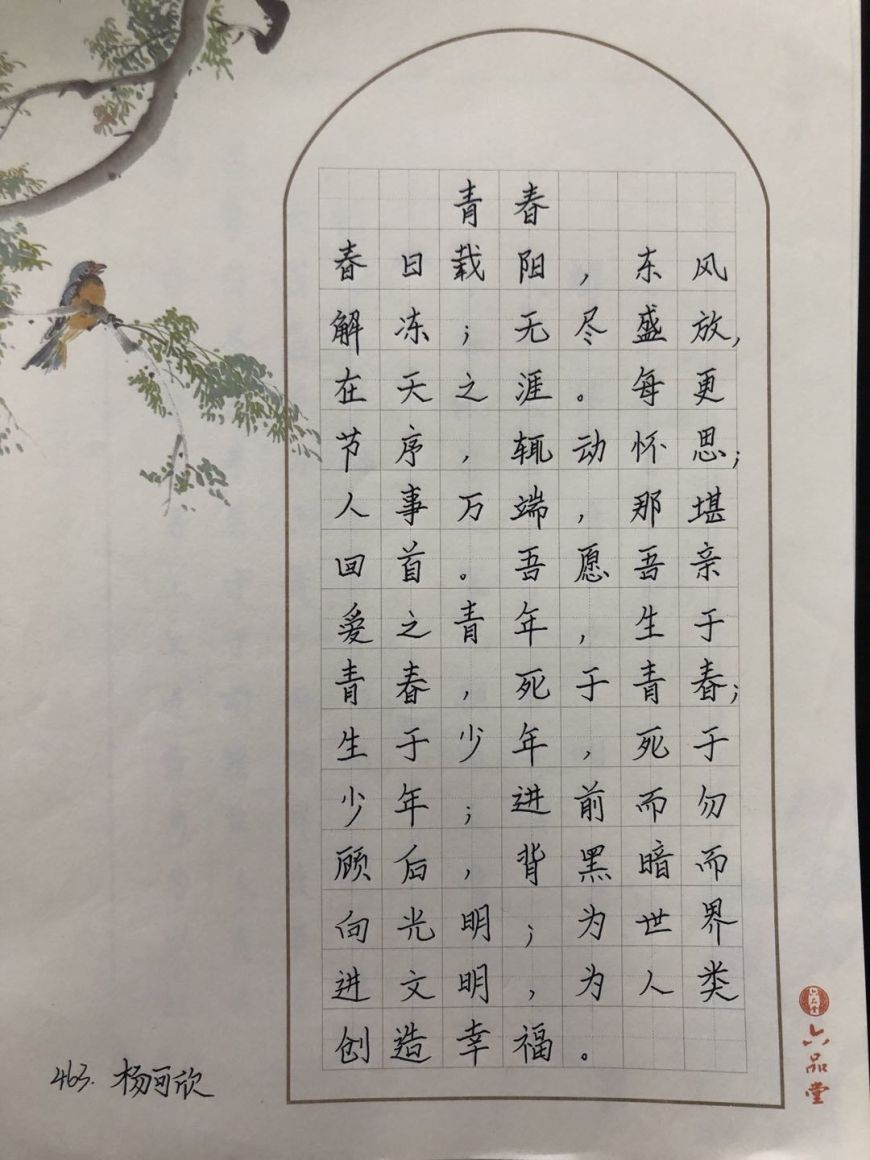 青春
春日载阳，东风
解冻；无尽盛放，
在天之涯。每更
节序，辄动怀思；
人事万端，那堪
回首。吾愿吾亲
爱之青年，生于
青春，死于青春；
生于少年，死于
少年；进前而勿
顾后，背黑暗而
向光明；为世界
进文明，为人类
创造幸福。
463. 杨可欣
六品堂
六品堂